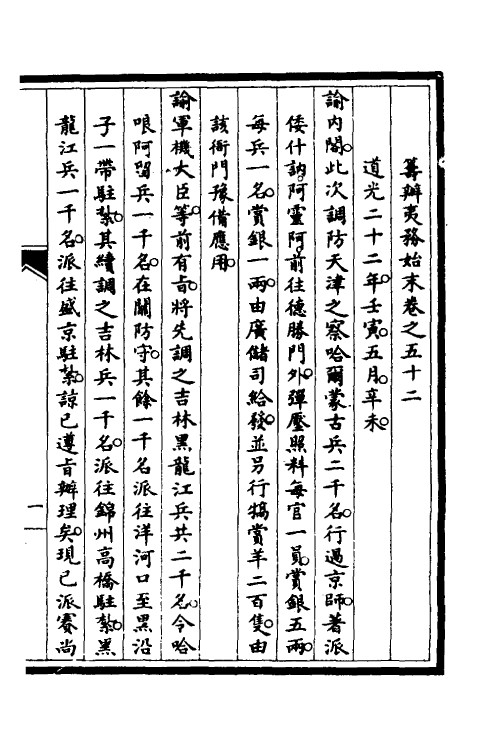 籌辦夷務始末卷之五十二
道光二十二年。壬寅。五月。辛未。
諭內閣。此次調防天津之察哈爾蒙古兵二千名。行過京師。著派
倭什訥。阿靈阿。前往德勝門外。彈壓照料。每官一員。賞銀五兩。
每兵一名。賞銀一兩。由廣儲司給發。並另行犒賞羊二百隻。由
該衙門豫備應用。
諭軍機大臣等。前有旨。將先調之吉林黑龍江兵共二千名。令哈
哴阿留兵一千名。在關防守。其餘一千名派往洋河口至黑沿
子一帶駐紮。其續調之吉林兵一千名。派往錦州高橋駐紮。黑
龍江兵一千名。派往盛京駐紮。諒已遵旨辦理矣。現已派賽尚
一